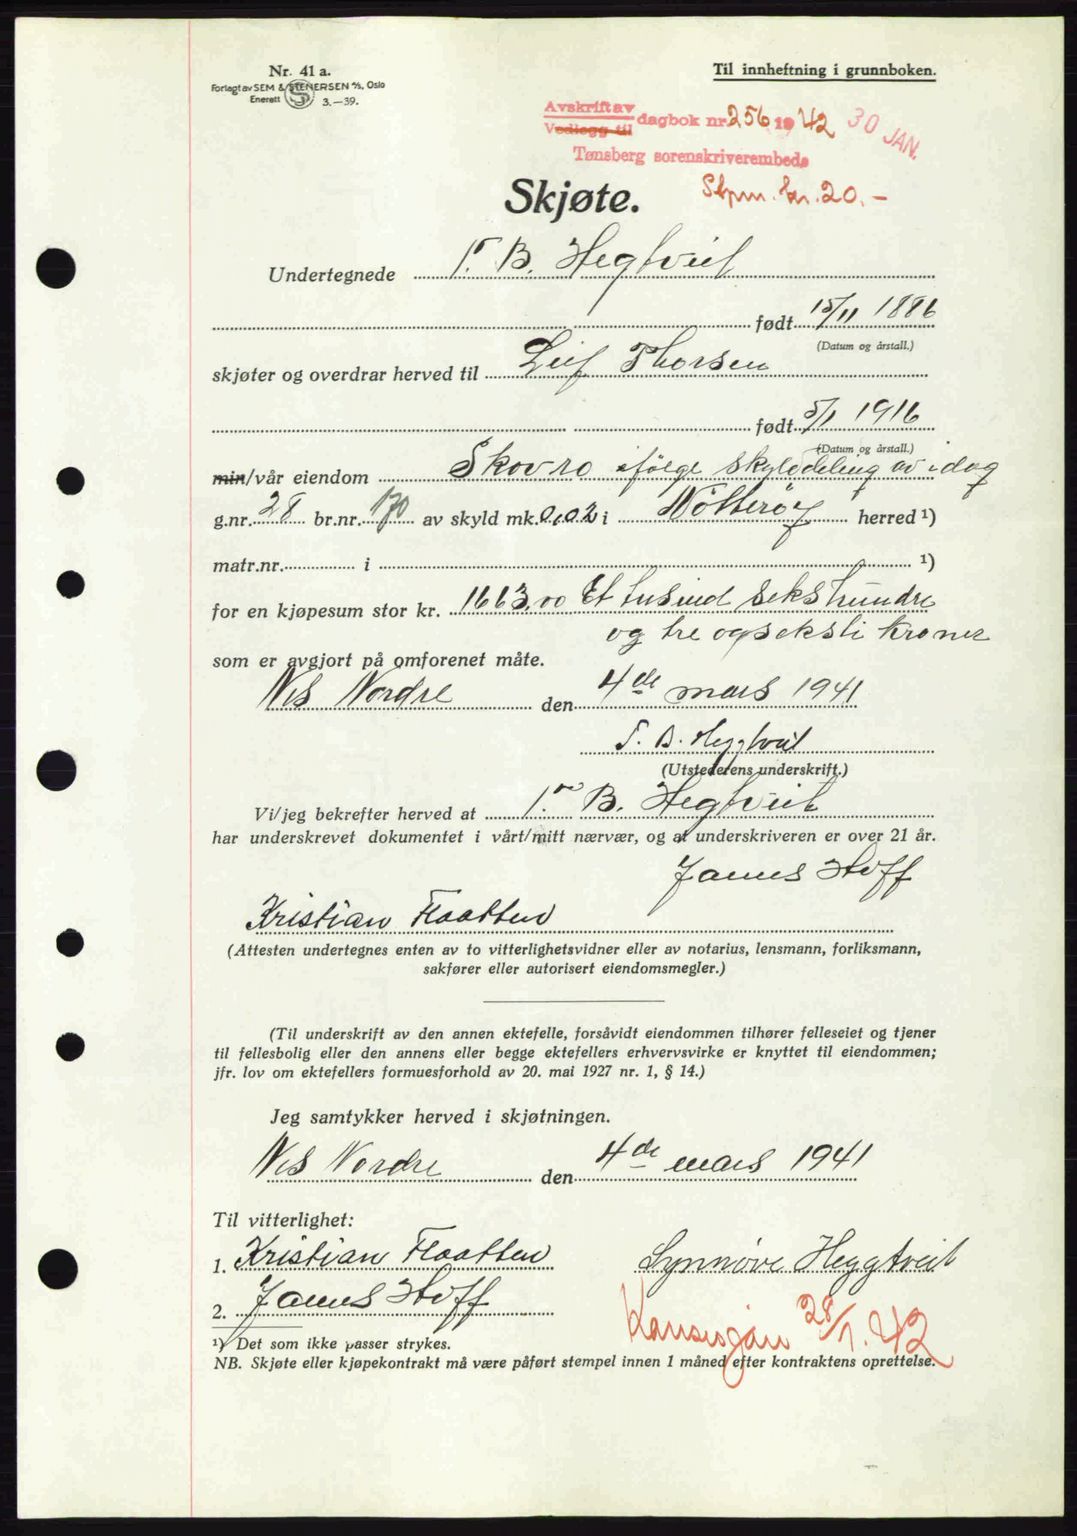 Nr. 41 a.
Til innheftning i grunnboken.
Forlagt av SEM & STENERSEN A/S, Oslo
Enerett S 3.—39.
Avskrift av
Vedlegg til dagbok nr. 256 1942 30 JAN.
Tønsberg sorenskriverembede
Stpm. kr. 20.-
Skjøte.
Undertegnede T. B. Hegtveit
født 15/11 1886
(Datum og årstall.)
skjøter og overdrar herved til Leif Thorsen
født 5/1 1916
(Datum og årstall.)
min/vår eiendom Skovro ifølge skylddeling av idag
g.nr. 28 br.nr. 170 av skyld mk. 0,02 i Nøtterøy herred ¹)
matr.nr. i ¹)
for en kjøpesum stor kr. 1663,00 Et tusind sekshundre
og tre og seksti kroner
som er avgjort på omforenet måte.
Nes Nordre den 4de mars 1941
T. B. Heggtveit
(Utstederens underskrift.)
Vi/jeg bekrefter herved at T. B. Hegtveit
har underskrevet dokumentet i vårt/mitt nærvær, og at underskriveren er over 21 år.
James Hoff
Kristian Flaatten
(Attesten undertegnes enten av to vitterlighetsvidner eller av notarius, lensmann, forliksmann,
sakfører eller autorisert eiendomsmegler.)
(Til underskrift av den annen ektefelle, forsåvidt eiendommen tilhører felleseiet og tjener
til fellesbolig eller den annens eller begge ektefellers erhvervsvirke er knyttet til eiendommen;
jfr. lov om ektefellers formuesforhold av 20. mai 1927 nr. 1, § 14.)
Jeg samtykker herved i skjøtningen.
Nes Nordre den 4de mars 1941
Til vitterlighet:
1. Kristian Flaatten
Synnøve Heggtveit
2. James Hoff
28/1. 42
¹) Det som ikke passer strykes.
NB. Skjøte eller kjøpekontrakt må være påført stempel innen 1 måned efter kontraktens oprettelse.